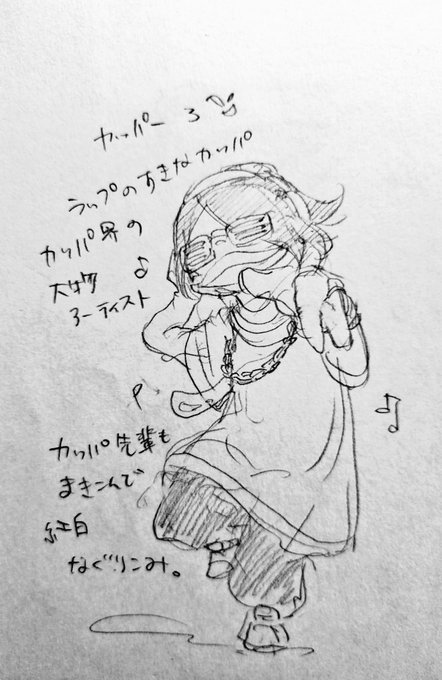 カッパー3
ラップのすきなカッパ
カッパ界の
大物
アーティスト
カッパ先輩も
まきこんで
紅白
なぐりこみ。